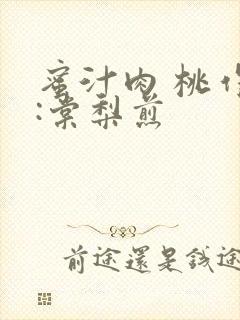 蜜汁肉桃作
:棠梨煎
前途還是錢途